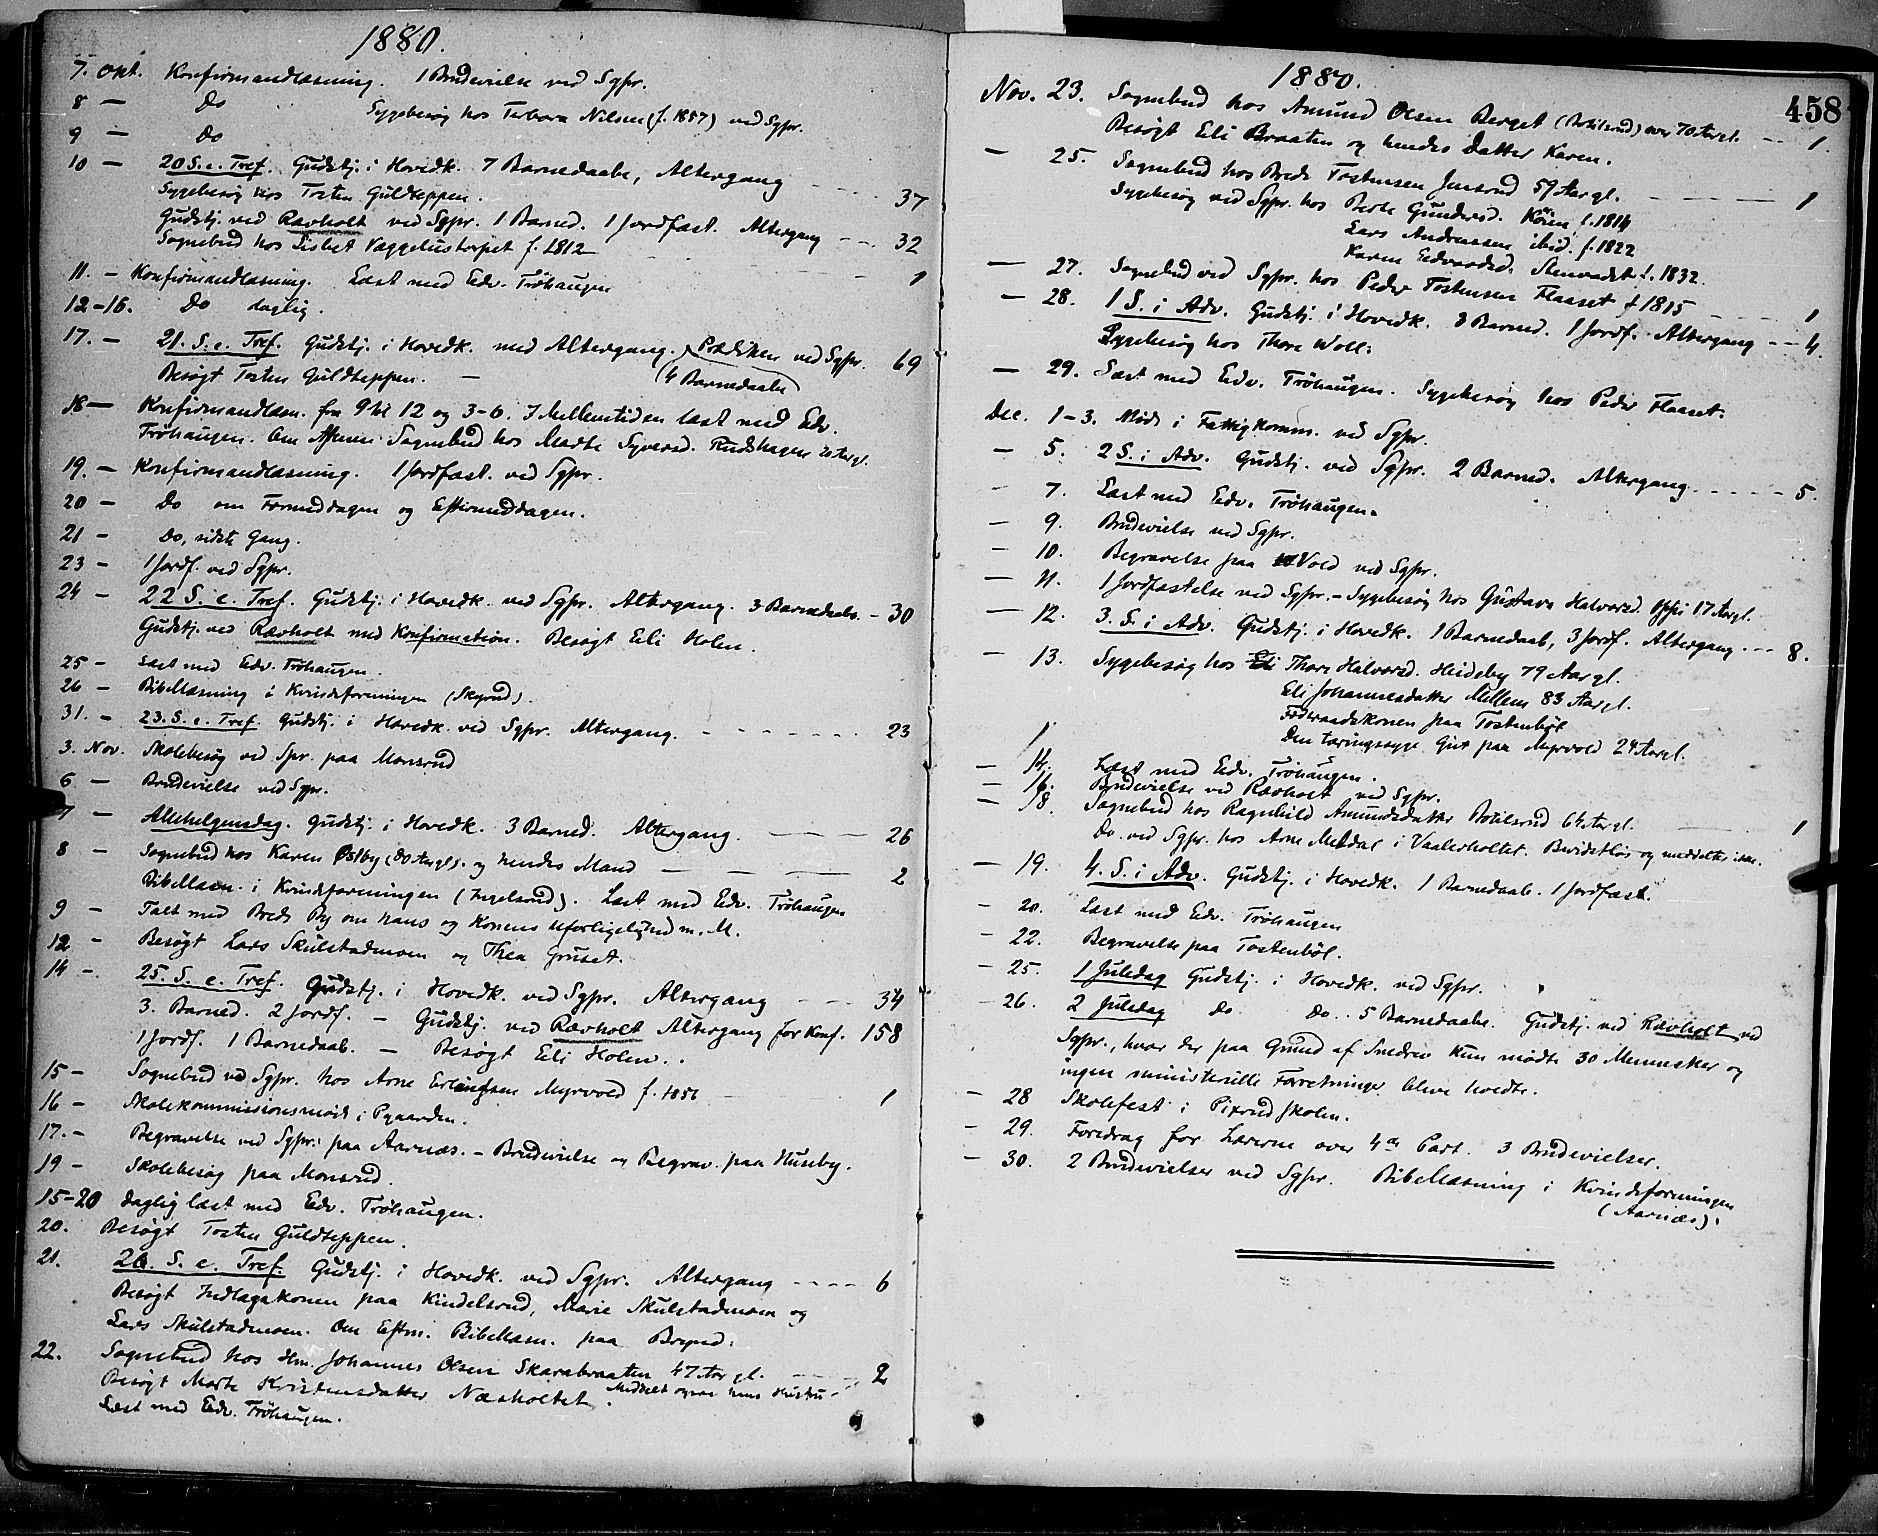 1880.
7. Okt. Konfirmandlæsning. 1 Brudevielse ved Sgpr.
8 — Do Sygebesøg hos Torbør Nilsen (f. 1857) ved Sgpr.
9 — Do
10 — 20 S. e. Tref. Gudstj. i Hovedk. 7 Barnedaabe, Altergang - - - 37
Sygebesøg hos Tosten Guldteppen.
Gudstj. ved Rävholt ved Sgpr. 1 Barned. 1 Jordfæst. Altergang - - - 32
Sognebud hos Lisbet Vaggelustorpet f. 1812 - - - 1
11. — Konfirmandlæsning. Læst med Edv. Tröhaugen
12-16. Do daglig.
17. — 21. S. e. Tref. Gudstj. i Hovedk. med Altergang. Prædiken ved Sgpr. 69
(4 Barnedaabe)
Besøgt Tosten Guldteppen. —
18 — Konfirmandlæsn. fra 9 til 12 og 3-6. I Mellemtiden læst med Edv.
Tröhaugen. Om Aftenen Sognebud hos Marte Syversd. Rudshagen
19. — Konfirmandlæsning. 1 Jordfæst. ved Sgpr.
20 — Do om Formiddagen og Eftermiddagen.
21 — Do, sidste Gang.
23 — 1 Jordf. ved Sgpr.
24 — 22 S. e. Tref. Gudstj. i Hovedk. ved Sgpr. Altergang. 3 Barnedaabe. - 30
Gudstj. ved Rävholt med Konfirmation. Besøgt Eli Holen.
25 — Læst med Edv. Tröhaugen.
26 — Bibellæsning i Kvindeforeningen (Skyrud).
31. — 23. S. e. Tref. Gudstj. i Hovedk. ved Sgpr. Altergang. - - - 23
3. Nov. Skolebesøg ved Spr. paa Monsrud
6 — Brudevielse ved Sgpr.
7 — Allehelgensdag. Gudstj. i Hovedk. 3 Barned. Altergang. — — 26
8 — Sognebud hos Karen Østby (80 Aar gl). og hendes Mand — — — 2
Bibellæsn. i Kvindeforeningen (Ingelsrud). Læst med Edv. Tröhaugen
9 — Talt med Brede By om hans og Konens Uforligelighed m. M.
12 — Besøgt Lars Skulstadmoen og Thea Gruset.
14 — 25. S. e. Tref. Gudstj. i Hovedk. ved Sgpr. Altergang - - - 34
3. Barned. 2 Jordf. — Gudstj. ved Rävholt Altergang for Konf. 158
1 Jordf. 1 Barnedaab. — Besøgt Eli Holen.
15 — Sognebud ved Sgpr. hos Arne Erlingsen Myrvold f. 1856 - - - 1
16 — Skolekommissionsmøde i Pgaarden.
17. — Begravelse ved Sgpr. paa Aarnæs. — Brudevielse og Begrav. paa Huseby.
19 — Skolebesøg paa Monsrud.
15-20 daglig læst med Edv. Tröhaugen.
20. Besøgt Tosten Guldteppen.
21. 26. S. e. Tref. Gudstj. i Hovedk. ved Sgpr. Altergang - - - 6
Besøgt Indlagskonen paa Kindelsrud, Marie Skulstadmoen og
Lars Skulstadmoen. Om Eftm. Bibellæsn. paa
22. Sognebud hos Hm. Johannes Olsen Skarabraaten 47 Aar gl. - - - 2
Meddelt ogsaa hans Hustru
Besøgt Marte Kristensdatter Næsholtet.
Læst med Edv. Tröhaugen.
458
1880.
Nov. 23. Sognebud hos Amund Olsen Berget (Botilsrud) over 70 Aar gl. - - 1.
Besøgt Eli Braaten og hendes Datter Karen.
— 25. Sognebud hos Brede Tostensen Jensrud 59 Aar gl. - - - 1
Sygebesøg ved Sgpr. hos Berte Gundersd. f. 1814
Lars Andreassen ibid. f. 1822
Karen Edvardsd. Stenvadet f. 1832.
— 27. Sognebud ved Sgpr. hos Peder Tostensen Flaaset f 1815 - - - 1
— 28. 1 S. i Adv. Gudstj. i Hovedk. 3 Barned. 1 Jordf. Altergang - - 4.
Sygebesøg hos Thore Woll.
— 29. Læst med Edv. Tröhaugen. Sygebesøg hos Peder Flaaset.
Dec. 1-3. Møde i Fattigkomm. ved Sgpr.
— 5. 2 S. i Adv. Gudstj. ved Sgpr. 2 Barned. Altergang - - - 5.
— 7. Læst med Edv. Tröhaugen.
— 9. Brudevielse ved Sgpr.
— 10. Begravelse paa Vold ved Sgpr.
— 11. 1 Jordfæstelse ved Sgpr. — Sygebesøg hos Gustava Halvorsd. Oppi 17 Aar gl.
— 12. 3. S. i Adv. Gudstj. i Hovedk. 1 Barnedaab, 3 Jordf. Altergang - - - 8.
— 13. Sygebesøg hos Thore Halvorsd. Heideby 79 Aar gl.
Eli Johannesdatter Mellem 83 Aar gl.
Föderaadskonen paa Tostenböl
Den tæringssyge Gut paa Myrvold 24 Aar gl.
— 14. Læst med Edv. Tröhaugen.
— 16. Brudevielse ved Rävholt ved Sgpr.
— 18. Sognebud hos Ragnhild Amundsdatter Botilsrud 64 Aar gl. — 1
Do ved Sgpr. hos Arne Meldal i Vaalerholtet. Bevidstløs og meddeltes ikke.
— 19. 4. S. i Adv. Gudstj. i Hovedk. 1 Barnedaab. 1 Jordfæst.
— 20. Læst med Edv. Tröhaugen
— 22. Begravelse paa Tostenböl.
— 25. 1 Juledag Gudstj. i Hovedk. ved Sgpr.
— 26. 2 Juledag do do. 5 Barnedaabe. Gudstj. ved Rävholt ved
Sgpr., hvor der paa Grund af Snedrev kun mødte 30 Mennesker og
ingen ministerielle Forretninger bleve holdte.
— 28 Skolefest i Pixrud Skolen.
— 29. Foredrag for Lærerne over 4de Part. 3 Brudevielser.
— 30. 2 Brudevielser ved Sgpr. Bibellæsning i Kvindeforeningen
(Aarnæs).